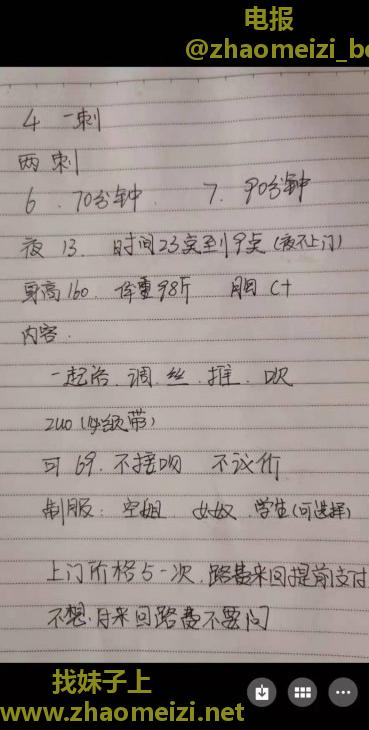 电报
@zhaomeizi_b
4 一刺
两刺
6. 70分钟. 7. 90分钟
夜 13. 时间23点到9点(夜不上门)
身高160. 体重98斤 胸 C+
内容.
一起洗. 调. 丝. 推. 吹
zuo(必须带)
可 69. 不接吻 不议价
制服: 空姐 女奴. 学生(可选择)
上门价格5一次. 路费来回提前支付
不想付来回路费不要问
找妹子上
www.zhaomeizi.net